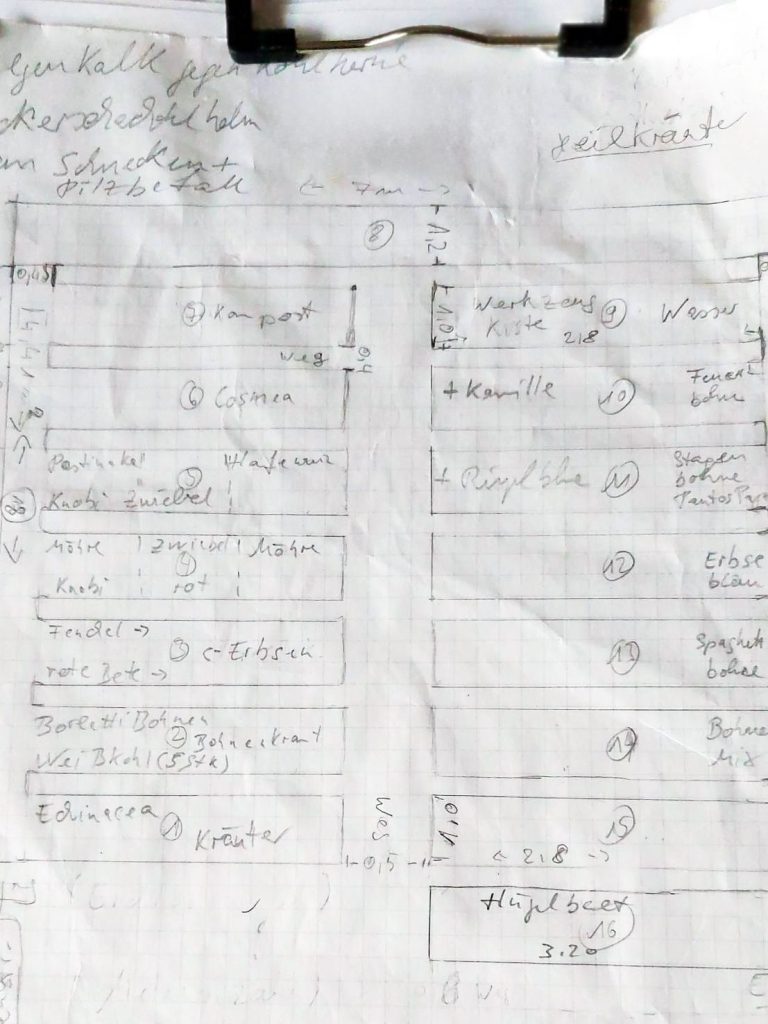 Kalk gegen Kohlhernie
Schnecken +
Pilzbefall
Heilkräuter
← 7m →
8
1,2
0,45
7 Kompost
1,0
Werkzeug
Kiste
9
2,8
Wasser
Weg
0,4
6 Cosmea
+ Kamille
10
Feuer
bohne
Pastinake
5
Haferwurz
Knobi Zwiebel
+ Ringelblu
11
Stagen
bohne
18
Möhre
Zwiebel
Möhre
4
Knobi
rot
12
Erbse
blau
Fenchel →
3
← Erbsen
rote Bete →
13
Spaghetti
bohne
Borlotti Bohnen
2
Bohnenkraut
Weißkohl (5 Stk)
14
Bohne
Mix
Echinacea
1
Kräuter
Weg
← 0,5 →
1,0
15
← 2,8 →
Hügelbeet
16
3.20